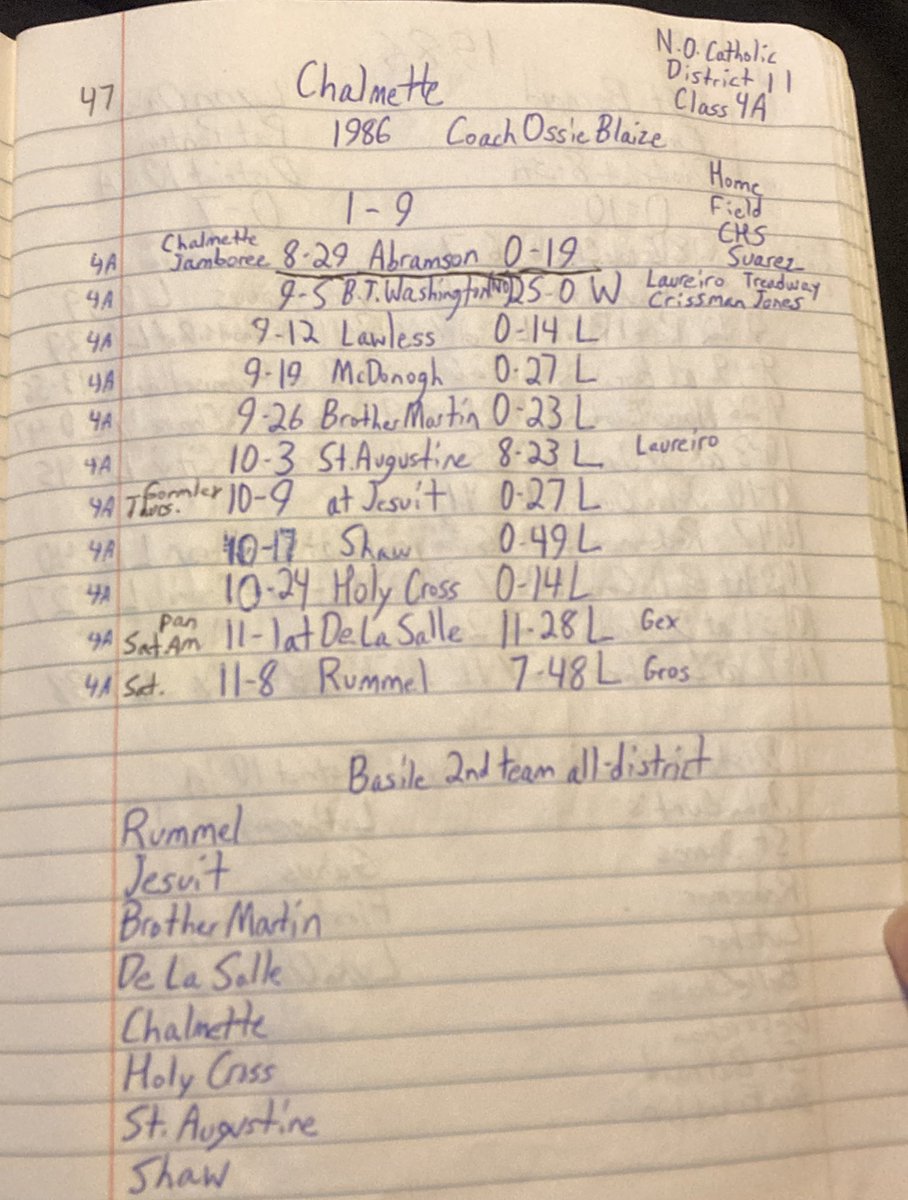 N.O. Catholic
District 11
Class 4A
47 Chalmette
1986 Coach Ossie Blaize
Home
Field
CHS
1-9
Chalmette
4A Jamboree 8-29 Abramson 0-19 Suarez
4A 9-5 B.T. Washington (NO) 25-0 W Laureiro Treadway
Crissman Jones
4A 9-12 Lawless 0-14 L
4A 9-19 McDonogh 0-27 L
4A 9-26 Brother Martin 0-23 L
4A 10-3 St. Augustine 8-23 L Laureiro
4A Gormley Thurs. 10-9 at Jesuit 0-27 L
4A 10-17 Shaw 0-49 L
4A 10-24 Holy Cross 0-14 L
Pan
4A Sat. Am 11-1 at De La Salle 11-28 L Gex
4A Sat. 11-8 Rummel 7-48 L Gros
Basile 2nd team all-district
Rummel
Jesuit
Brother Martin
De La Salle
Chalmette
Holy Cross
St. Augustine
Shaw